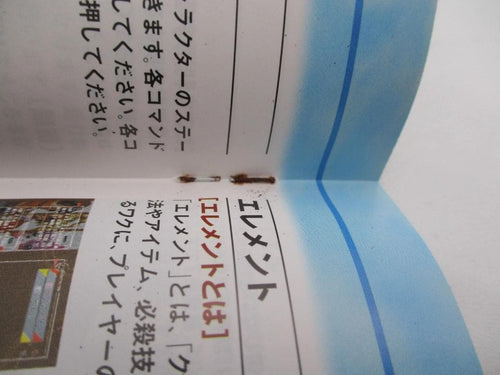 ラクターのステー
きます。各コマンド
してください。各コ
押してください。
エレメント
[エレメントとは]
「エレメント」とは、「ク
法やアイテム、必殺技
るワクに、プレイヤーの